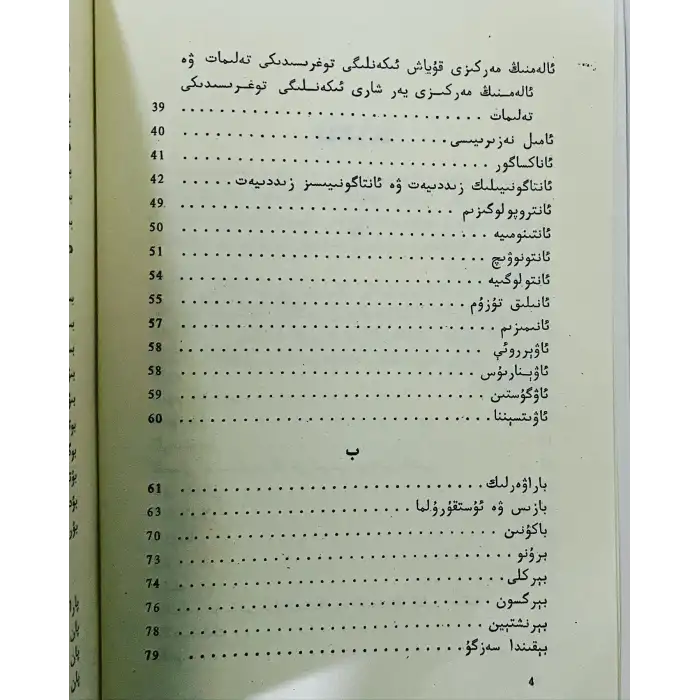 ئالەمنىڭ مەركىزى قۇياش ئىكەنلىگى توغرىسىدىكى تەلىمات ۋە
ئالەمنىڭ مەركىزى يەر شارى ئىكەنلىگى توغرىسىدىكى
تەلىمات 39
ئامىل نەزىرىيىسى 40
ئاناكساگور 41
ئانتاگونىيىلىك زىددىيەت ۋە ئانتاگونىيىسىز زىددىيەت 42
ئانتروپولوگىزىم 49
ئانتىنومىيە 50
ئانتونوۋىچ 51
ئانتولوگىيە 54
ئانىلىق تۈزۈم 55
ئانىمىزىم 57
ئاۋېرروئې 58
ئاۋېنارىۇس 58
ئاۋگۇستىن 59
ئاۋىتسېننا 60
ب
باراۋەرلىك 61
بازىس ۋە ئۈستقۇرۇلما 63
باكۇنىن 70
برۇنو 73
بېركلى 74
بېرگسون 76
بېرنشتېين 78
بېقىندا سەزگۇ 79
4